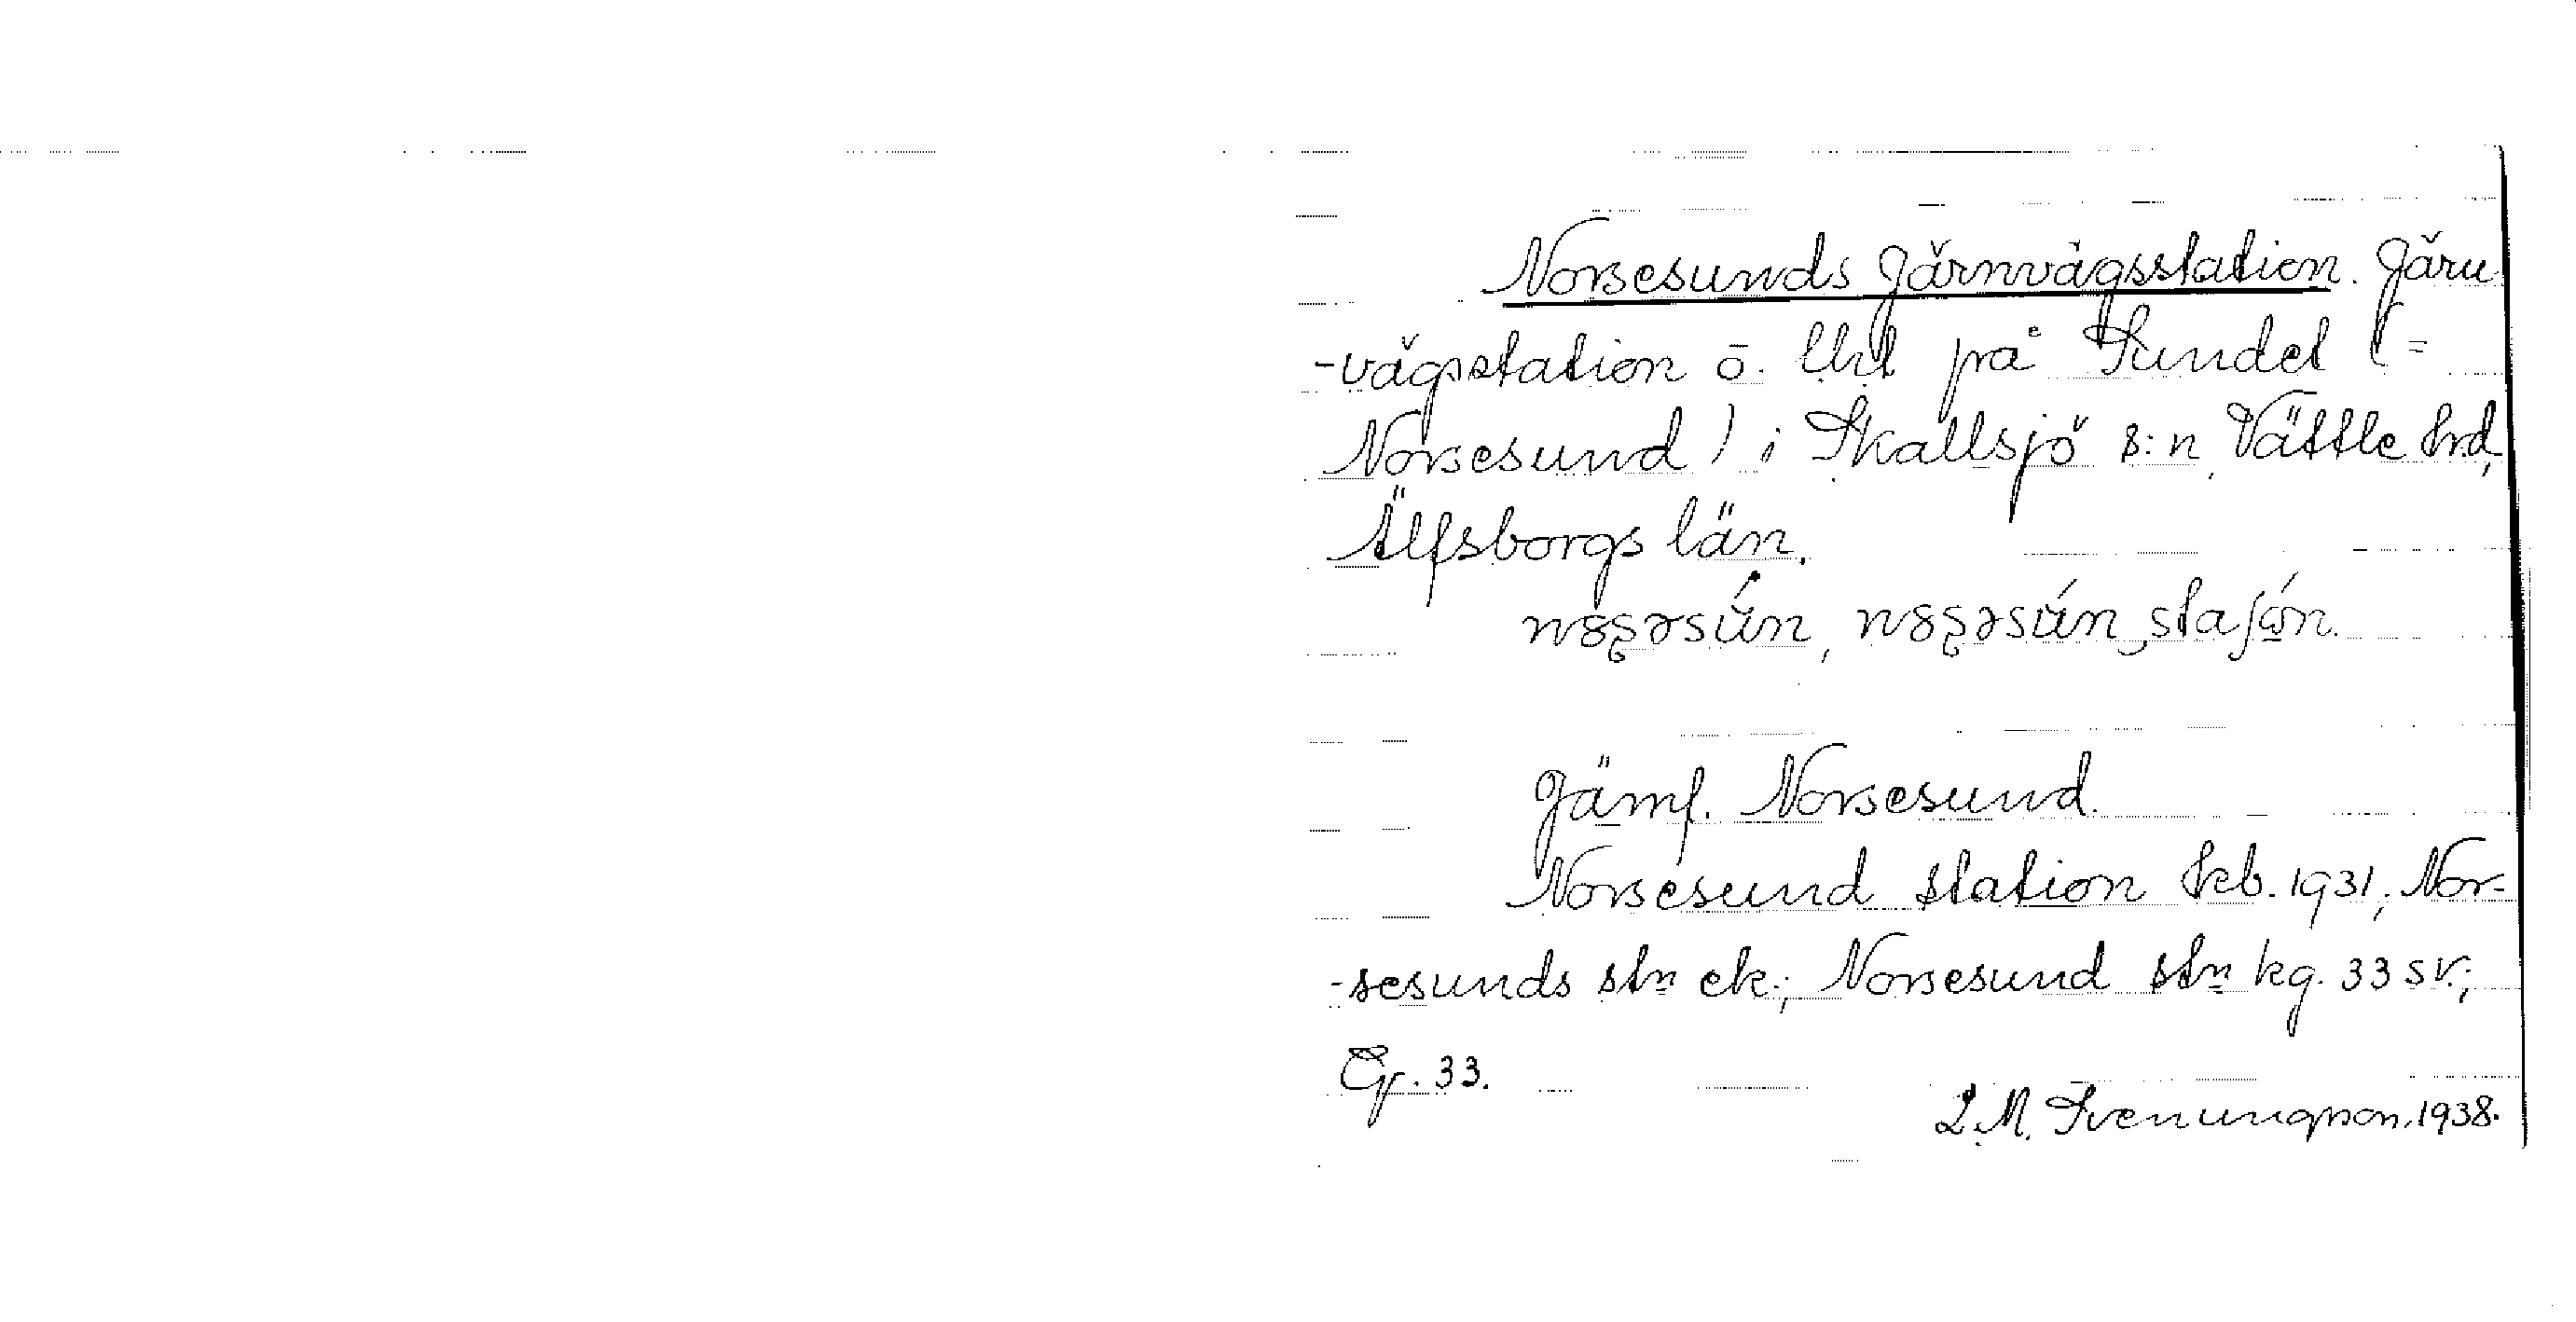 Norsesunds Järnvägsstation. Järn
-vägsstation o. Uhl på Sundet (=
Norsesund) i Skallsjö s:n, Vättle hrd,
Älfsborgs län.
Jämf. Norsesund.
Norsesund station Skb. 1931; Nor-
-sesunds stn ek.; Norsesund stn kg. 33 sv.;
33.
L.M. Svenungsson. 1938.